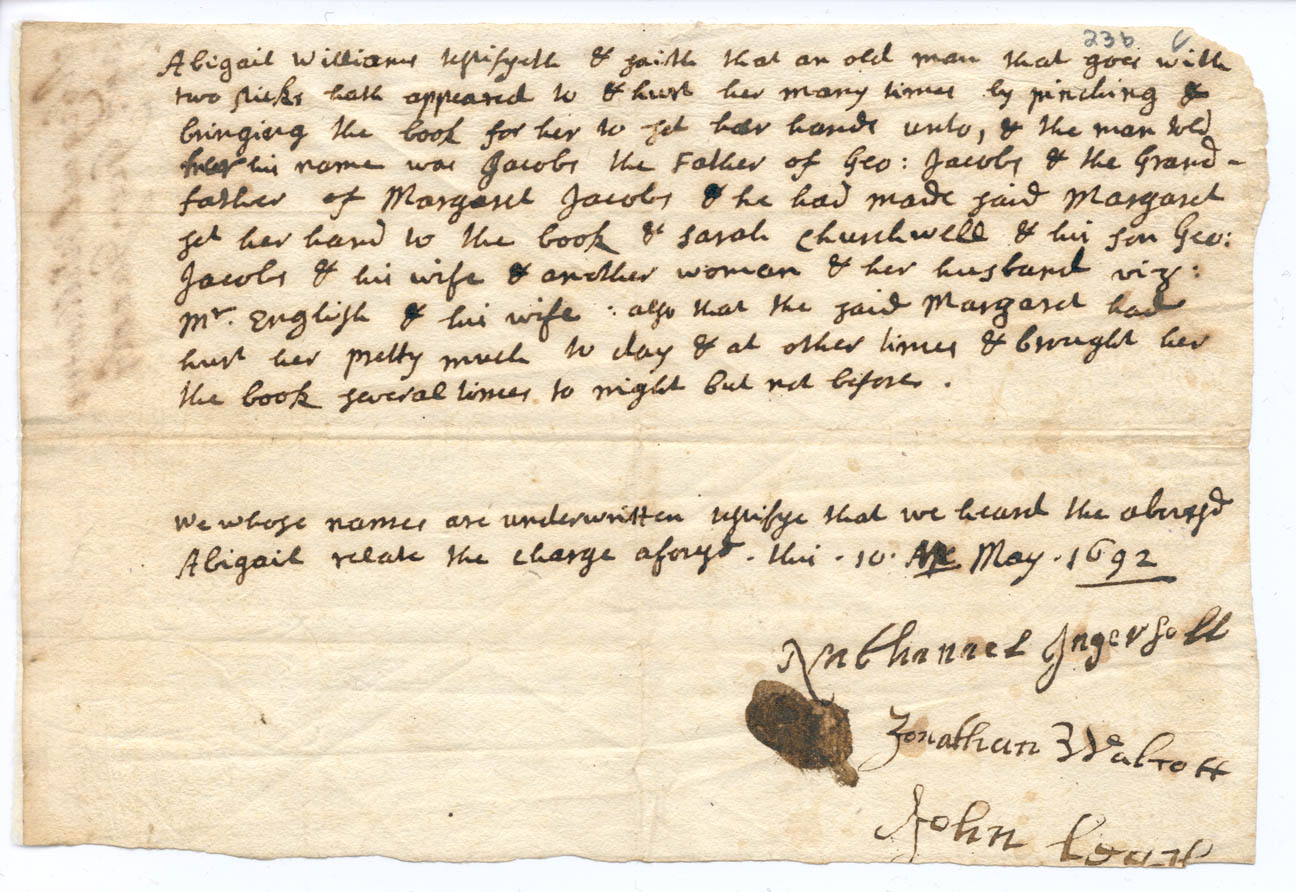 23b
Abigail Williams testifyeth & saith that an old man that goes with
two sticks hath appeared to & hurt her many times by pinching &
bringing the book for her to set her hande unto, & the man told
her his name was Jacobs the Father of Geo: Jacobs & the Grand-
father of Margaret Jacobs & he had made said Margaret
set her hand to the book & Sarah Churchwell & his son Geo:
Jacobs & his wife & another woman & her husband viz:
Mr. English & his wife : also that the said Margaret had
hurt her pretty much to day & at other times & brought her
the book several times to night but not before.
We whose names are underwritten testifye that we heard the abovesd
Abigail relate the charge aforesd. this . 10. May . 1692
Nathanael Ingersoll
Jonathan Walcott
John